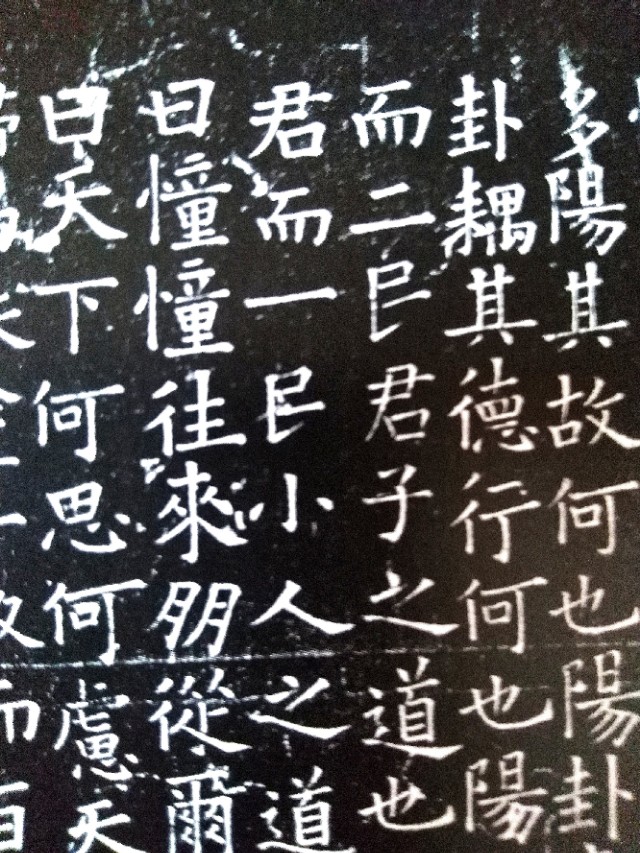 多陽其故何也陽卦
卦耦其德行何也陽
而二民君子之道也
君而一民小人之道
曰憧憧往來朋從爾
曰天下何思何慮天